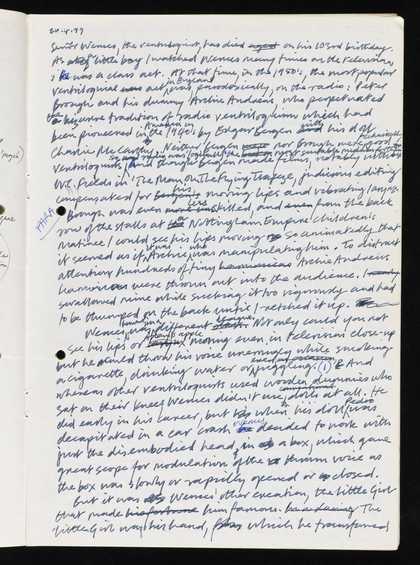 20.4.99
Señor Wences, the ventriloquist, has died on his 103rd birthday.
As a little boy I watched Wences many times on the television;
he was a class act. At that time, in the 1950's, the most popular
ventriloquial act in England was, paradoxically, on the radio: Peter
Brough and his dummy Archie Andrews, who perpetuated
tradition of radio ventriloquism which had
been pioneered in America in the 1940's by Edgar Bergen and his doll
Charlie McCarthy. Neither Bergen nor Brough
ventriloquists, though Bergen made films, notably with
W.C. Fields in The Man On The Flying Trapeze, judicious editing
compensated for his moving lips and vibrating larynx.
Brough was even less skilled, and from the back
row of the stalls at Nottingham Empire children's
matinee I could see his lips moving so animatedly that
it seemed as if it was Archie who was manipulating him. To distract
attention, hundreds of tiny Archie Andrews
harmonicas were thrown out into the audience. I
swallowed mine while sucking it too vigorously and had
to be thumped on the back until I retched it up.
Wences was different. Not only could you not
see his lips or Adam's apple moving even in television close-up
but he could throw his voice unerringly while smoking
a cigarette, drinking water or juggling. And
whereas other ventriloquists used wooden dummies who
sat on their knee Wences didn't use dolls at all. He
did early in his career, but when his doll Pedro was
decapitated in a car crash Wences decided to work with
just the disembodied head, in a box, which gave
great scope for modulation of the thrown voice as
the box was slowly or rapidly opened or closed.
But it was Wences' other creation, the Little Girl
that made him famous. The
Little Girl was his hand, which he transformed
PARA